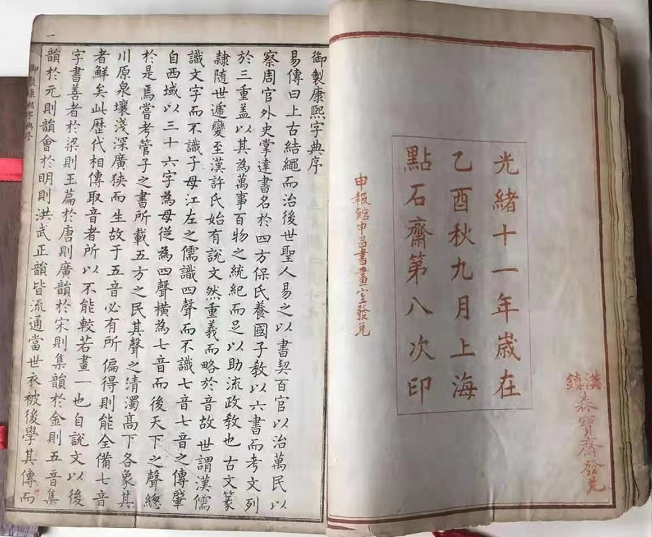 光緒十一年歲在
乙酉秋九月上海
點石齋第八次印
申報館申昌書畫室發兌
漢鎮
泰寶齋發兌
御製康熙字典序
易傳曰上古結繩而治後世聖人易之以書契百官以治萬民以
察周官外史掌達書名於四方保氏養國子教以六書而考文列
於三重蓋以其為萬事百物之統紀而足以助流政教也古文篆
隸隨世遞變至漢許氏始有說文然重義而略於音故世謂漢儒
識文字而不識子母江左之儒識四聲而不識七音七音之傳肇
自西域以三十六字為母從為四聲橫為七音而後天下之聲總
於是焉嘗考管子之書所載五方之民其聲之清濁高下各象其
川原泉壤淺深廣狹而生故于五音必有所偏得則能全備七音
者鮮矣此歷代相傳取音者所以不能較若畫一也自說文以後
字書善者於梁則玉篇於唐則廣韻於宋則集韻於金則五音集
韻於元則韻會於明則洪武正韻皆流通當世衣被後學其傳而
一